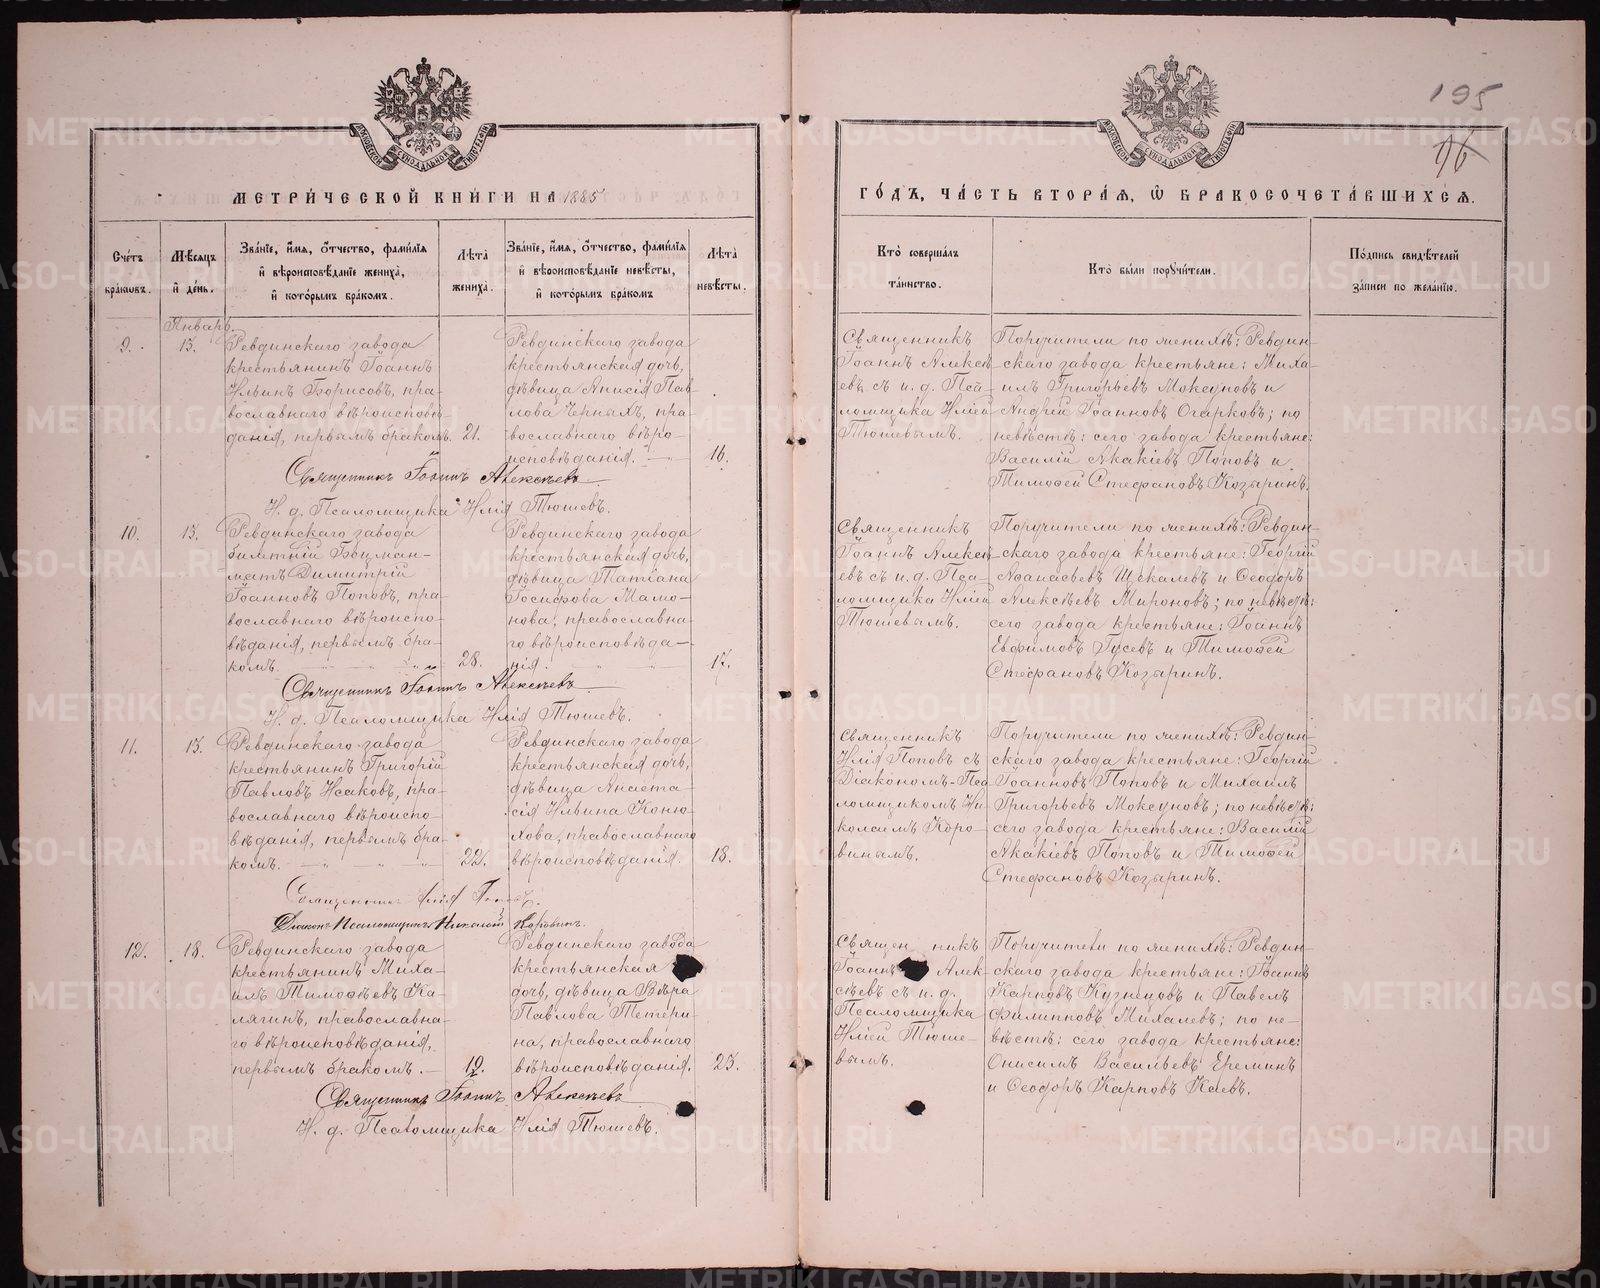 195
96
МЕТРИЧЕСКОЙ КНИГИ НА 1885
ГОДЪ, ЧАСТЬ ВТОРАЯ, Ѡ БРАКОСОЧЕТАВШИХСЯ.
Счетъ браковъ.
Мѣсяцъ и день.
Званіе, имя, отчество, фамилія
и вѣроисповѣданіе жениха,
и которымъ бракомъ.
Лѣта жениха.
Званіе, имя, отчество, фамилія
и вѣроисповѣданіе невѣсты,
и которымъ бракомъ
Лѣта невѣсты.
Кто совершалъ
таинство.
Кто были поручители.
Подпись свидѣтелей
записи по желанію.
Январь.
9. 13.
Ревдинскаго завода
крестьянинъ Іоаннъ
Ильинъ Борисовъ, пра-
вославнаго вѣроисповѣ-
данія, первымъ бракомъ. 21.
Ревдинскаго завода
крестьянская дочь,
дѣвица Анисія Пав-
лова Черныхъ, пра-
вославнаго вѣро-
исповѣданія. 16.
Священникъ
Іоаннъ Алексѣ-
евъ съ и. д. Пса-
ломщика Иліей
Тюшевымъ.
Поручители по женихѣ: Ревдин-
скаго завода крестьяне: Миха-
илъ Григорьевъ Моксуновъ и
Андрей Іоанновъ Огарковъ; по
невѣстѣ: сего завода крестьяне:
Василій Акакіевъ Поповъ и
Тимоѳей Стефановъ Козыринъ.
Священникъ Іоаннъ Алексѣевъ
И. д. Псаломщика Илія Тюшевъ.
10. 13.
Ревдинскаго завода
билетный Боцман-
матъ Димитрій
Іоанновъ Поповъ, пра-
вославнаго вѣроиспо-
вѣданія, первымъ бра-
комъ. 28.
Ревдинскаго завода
крестьянская дочь,
дѣвица Татіана
Іосифова Мамо-
нова, православна-
го вѣроисповѣда-
нія. 17.
Священникъ
Іоаннъ Алексѣ-
евъ съ и. д. Пса-
ломщика Иліей
Тюшевымъ.
Поручители по женихѣ: Ревдин-
скаго завода крестьяне: Георгій
Аѳанасьевъ Щекалевъ и Ѳеодоръ
Алексѣевъ Мироновъ; по невѣстѣ:
сего завода крестьяне: Іоаннъ
Евфимовъ Гусевъ и Тимоѳей
Стефановъ Козыринъ.
Священникъ Іоаннъ Алексѣевъ
И. д. Псаломщика Илія Тюшевъ.
11. 13.
Ревдинскаго завода
крестьянинъ Григорій
Павловъ Исаковъ, пра-
вославнаго вѣроиспо-
вѣданія, первымъ бра-
комъ. 22.
Ревдинскаго завода
крестьянская дочь,
дѣвица Анаста-
сія Ильина Коню-
хова, православнаго
вѣроисповѣданія. 18.
Священникъ
Илія Поповъ съ
Діакономъ-Пса
ломщикомъ Ни-
колаемъ Коро-
винымъ.
Поручители по женихѣ: Ревдин-
скаго завода крестьяне: Георгій
Іоанновъ Поповъ и Михаилъ
Григорьевъ Моксуновъ; по невѣстѣ:
сего завода крестьяне: Василій
Акакіевъ Поповъ и Тимоѳей
Стефановъ Козыринъ.
Священникъ Илія Поповъ.
Діаконъ Псаломщикъ Николай Коровинъ.
12. 18.
Ревдинскаго завода
крестьянинъ Миха-
илъ Тимоѳѣевъ Ка-
лягинъ, православна-
го вѣроисповѣданія,
первымъ бракомъ. 19.
Ревдинскаго завода
крестьянская
дочь, дѣвица Вѣра
Павлова Тетери-
на, православнаго
вѣроисповѣданія. 23.
Священникъ
Іоаннъ Алек-
сѣевъ съ и. д.
Псаломщика
Иліей Тюше-
вымъ.
Поручители по женихѣ: Ревдин-
скаго завода крестьяне: Іоаннъ
Карповъ Кузнецовъ и Павелъ
Филипповъ Михалевъ; по не-
вѣстѣ: сего завода крестьяне:
Онисимъ Васильевъ Ереминъ
и Ѳеодоръ Карповъ Каевъ.
Священникъ Іоаннъ Алексѣевъ
И. д. Псаломщика Илія Тюшевъ.
METRIKI.GASO-URAL.RU